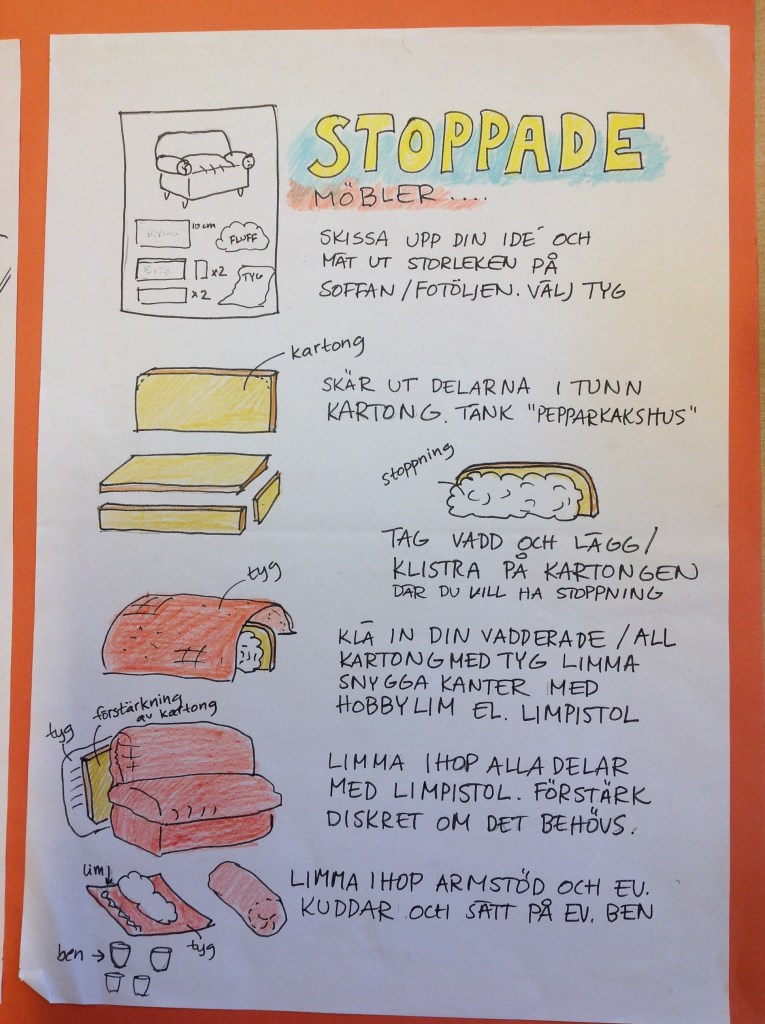 STOPPADE
MÖBLER.....
10 cm
FLUFF
x2
TYG
x2
SKISSA UPP DIN IDÉ OCH
MÄT UT STORLEKEN PÅ
SOFFAN/FOTÖLJEN. VÄLJ TYG
kartong
SKÄR UT DELARNA I TUNN
KARTONG. TÄNK "PEPPARKAKSHUS"
stoppning
TAG VADD OCH LÄGG/
KLISTRA PÅ KARTONGEN
DÄR DU VILL HA STOPPNING
tyg
KLÄ IN DIN VADDERADE/ALL
KARTONG MED TYG LIMMA
SNYGGA KANTER MED
HOBBYLIM EL. LIMPISTOL
tyg
förstärkning
av kartong
LIMMA IHOP ALLA DELAR
MED LIMPISTOL. FÖRSTÄRK
DISKRET OM DET BEHÖVS.
lim
LIMMA IHOP ARMSTÖD OCH EV.
KUDDAR OCH SÄTT PÅ EV. BEN
tyg
ben